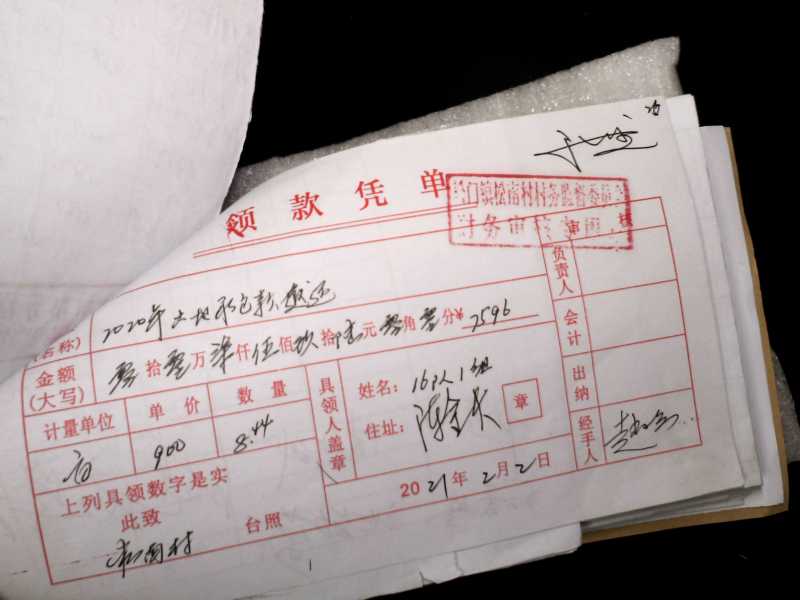 领款凭单
门镇松南村村务监督委员会
财务审核专用章
审核
(名称) 2020年土地承包款发还
金额(大写) 零拾零万柒仟伍佰玖拾陆元零角零分¥7596
计量单位 单价 数量
亩 900 8.44
上列具领数字是实
此致
台照
松南村
具领人盖章
姓名：16队1组
住址：陈金大
章
2021年2月2日
负责人
会计
出纳
经手人